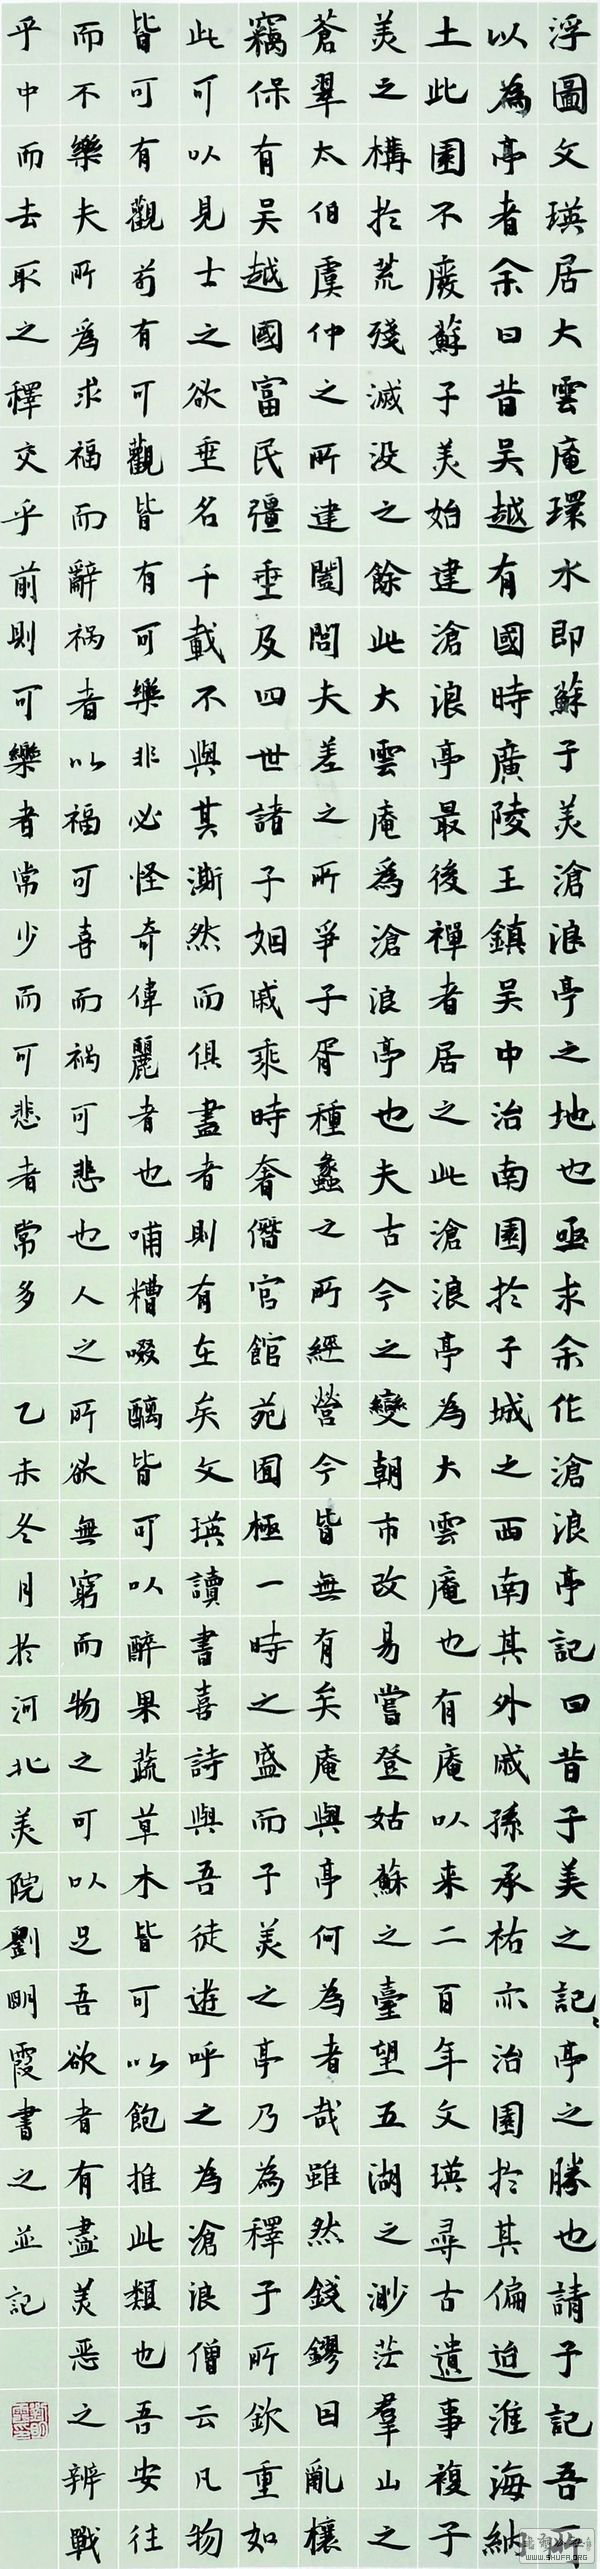 浮圖文瑛居大雲庵環水即蘇子美滄浪亭之地也亟求余作滄浪亭記曰昔子美之記〻亭之勝也請子記吾所
以為亭者余曰昔吳越有國時廣陵王鎮吳中治南園於子城之西南其外戚孫承祐亦治園於其偏迨淮海納
土此園不廢蘇子美始建滄浪亭最後禪者居之此滄浪亭為大雲庵也有庵以来二百年文瑛尋古遺事複子
美之構於荒殘滅没之餘此大雲庵為滄浪亭也夫古今之變朝市改易嘗登姑蘇之臺望五湖之渺茫羣山之
蒼翠太伯虞仲之所建闔閭夫差之所爭子胥種蠡之所經營今皆無有矣庵與亭何為者哉雖然錢鏐因亂攘
竊保有吳越國富民彊垂及四世諸子姻戚乘時奢僭官館苑囿極一時之盛而子美之亭乃為釋子所欽重如
此可以見士之欲垂名千載不與其澌然而俱盡者則有在矣文瑛讀書喜詩與吾徒遊呼之為滄浪僧云凡物
皆可有觀苟有可觀皆有可樂非必怪奇偉麗者也哺糟啜醨皆可以醉果蔬草木皆可以飽推此類也吾安往
而不樂夫所為求福而辭禍者以福可喜而禍可悲也人之所欲無窮而物之可以足吾欲者有盡美恶之辨戰
乎中而去取之釋交乎前則可樂者常少而可悲者常多 乙未冬月於河北美院劉明霞書之並記
WWW.SHUFA.ORG